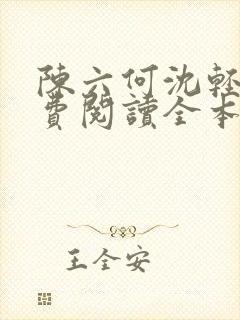 陳六何沈輕
費閱讀全本
王全安